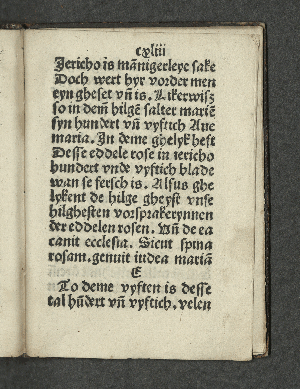 cxliii
Jericho is mānigerleye sake
Doch wert hyr vorder men
tyn gheset vn̄ is. Likerwisz
so in dem̄ hilgē salter mariē
syn hundert vn̄ vyftich Aue
maria. In deme ghelyk heft
Desse eddele rose in iericho
hundert vnde vyftich blade
wan se fersch is. Alsus ghe
lykent de hilge gheyst vnse
hilghesten vorsprakerynnen
der eddelen rosen. Vn̄ de ea
canit ecclesia. Sicut spina
rosam. genuit iudea mariā
E
To deme vyften is desse
tal hūdert vn̄ vyftich. velen